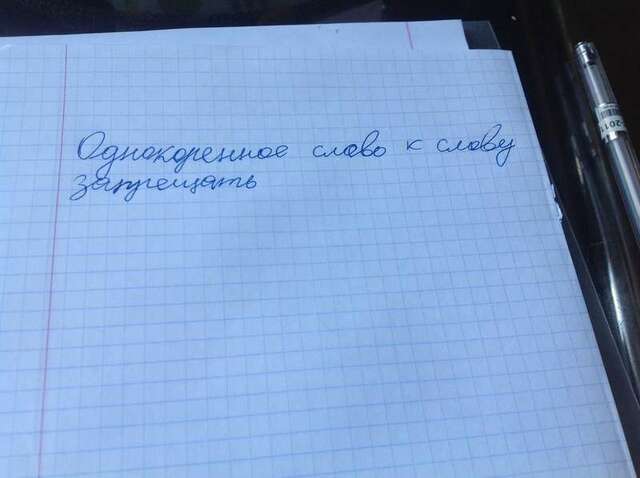 Однокоренное слово к слову
запрещать